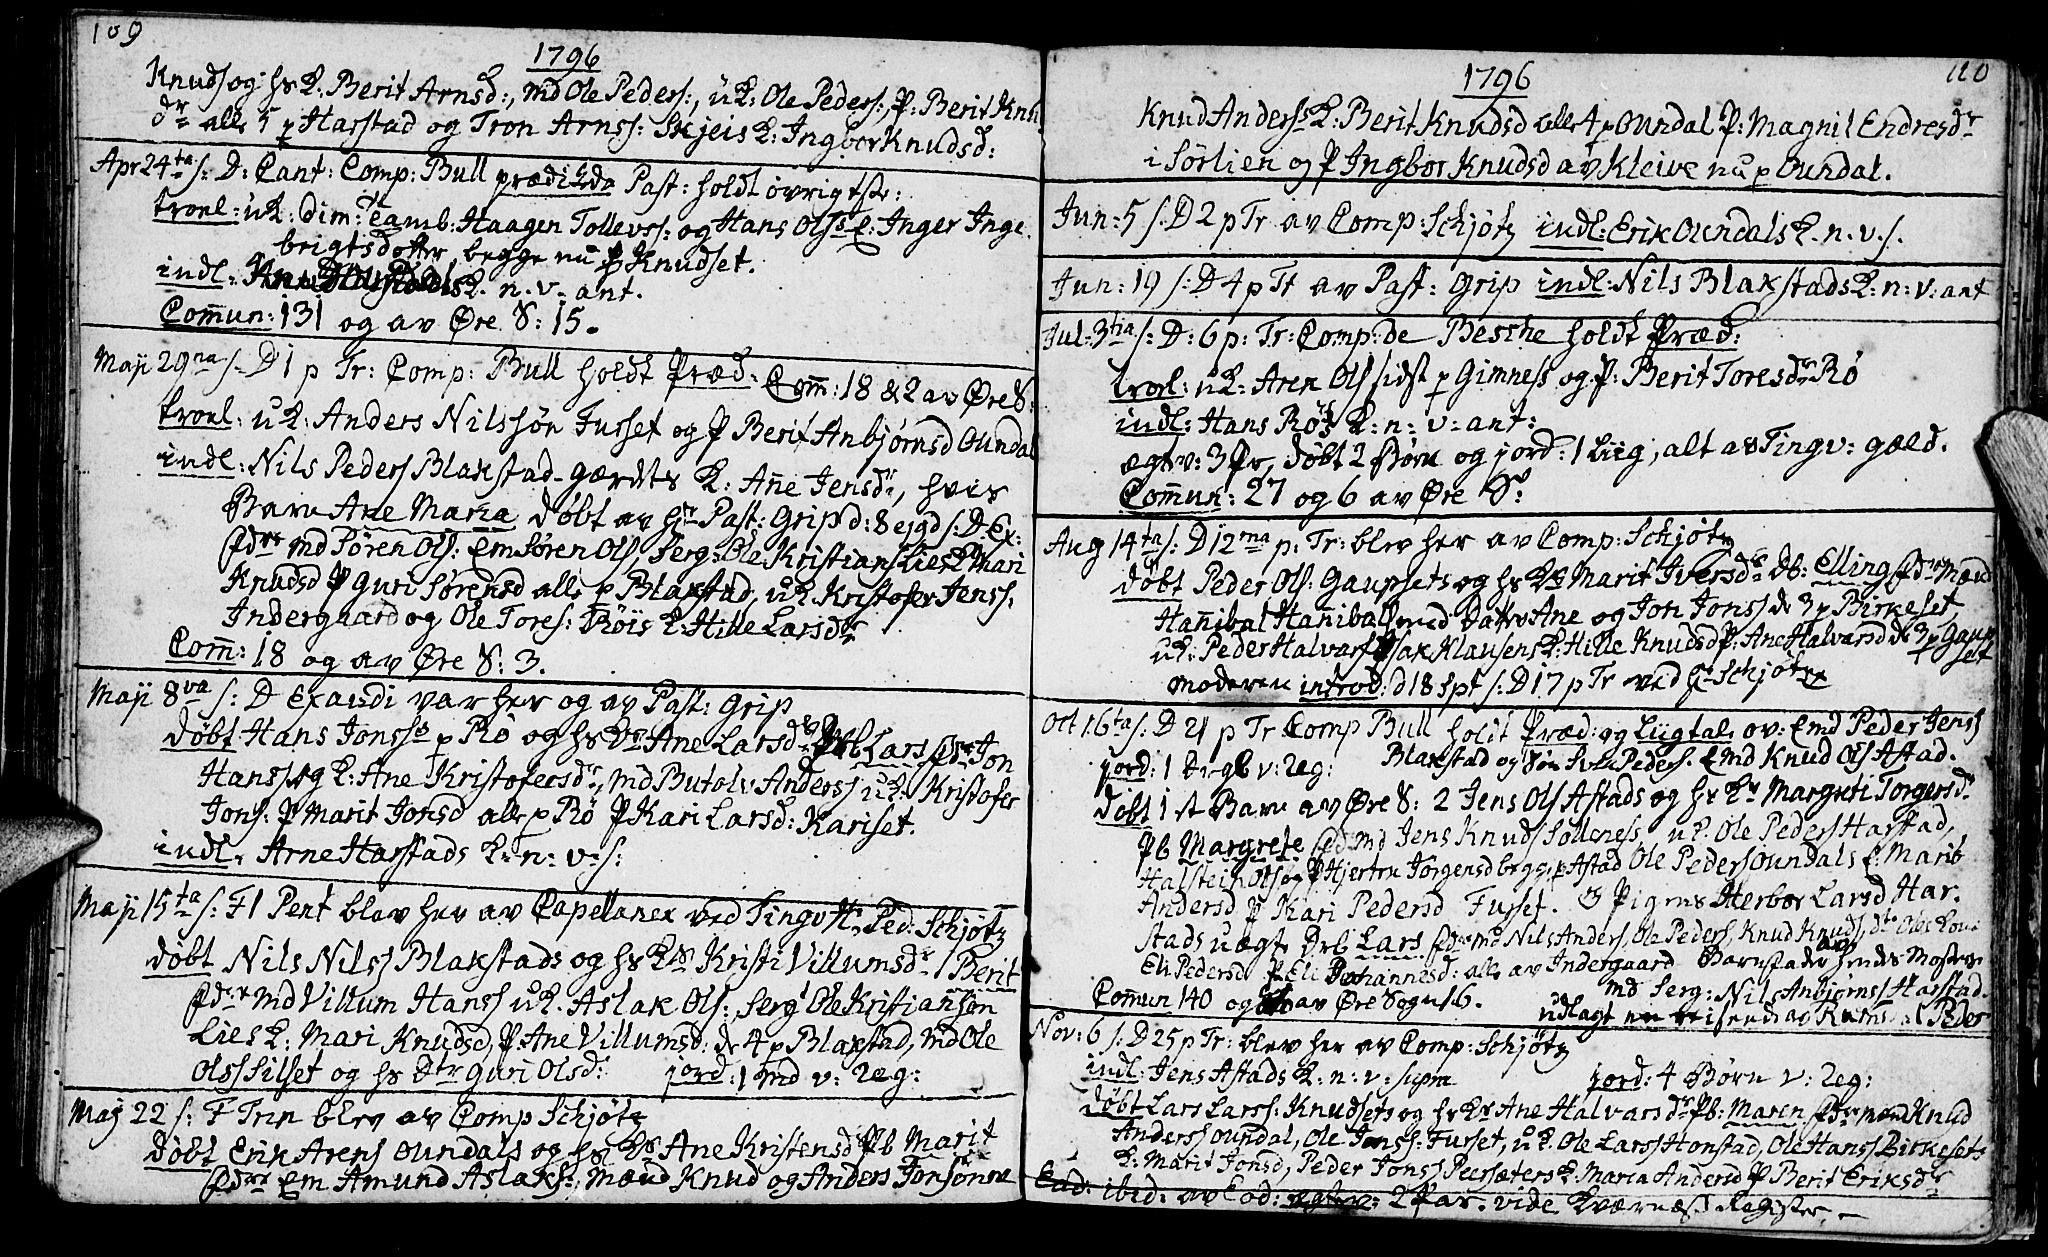 109
1796
Knuds og hs K: Berit Arnsd:, md Ole Peders:, uK: Ole Peders:, P: Berit Knu
dr alle 5 p Harstad og Tron Arnss: Skjeis K: Ingbor Knudsd:
Apr 24ta s: D: Cant: Comp: Bull prædikede Past: holdt øvrigtste:
trol: uK: dim: Haagen Tollevs: og Hans Olss E: Inger Inge
brigtsdotter begge nu p Knudset.
indl: K. n. v. ant.
Comun: 131 og av Øre S: 15.
Maji 29na s: D 1 p Tr: Comp: Bull holdt Præd. Com: 18 & 2 av Øre S:
trol: uK: Anders Nilssøn Furset og P Berit Anbjørnsd Oundal
indl: Nils Peders Blakstad-gærdts K: Ane Jensdr, hvis
Barn Ane Maria døbt av hr Past: Grip d: 8 ejgd s: D Ex:
fdre md Søren Ols: Em Søren Ols, Serg: Ole Kristians Lies K Mari
Knudsd P Guri Sørensd alle p Blakstad, uK Kristofer Jenss:
Indergaard og Ole Tores: Røis K: Hille Larsdr
Com: 18 og av Øre S: 3.
Maji 8va s: D Exaudi var her og av Past: Grip
døbt Hans Jonss p Rø og hs Kr Ane Larsdr Pb Lars fdre Jon
Hanss og K: Ane Kristofersdr, md Butolv Anderss uK: Kristofer
Jons: P Marit Jonsd alle p Rø P Kari Larsd: Kariset.
indl. Arne Harstads K: n: v: s:
Maji 15ta s: F 1 Pent blev her av Capellanen ved Tingv Hr Ped: Schjøtz
døbt Nils Nilss Blakstads og hs Ks Kristi Villumsdr 1 Berit
fdre md Villum Hanss uK. Aslak Ols: Serg Ole Kristiansen
Lies K: Mari Knudsd, P: Ane Villumsd: de 4 p Blakstad, md Ole
Olss Silset og hs Dtr Guri Olsd: jord: 1 md v: Ræg:
Maj 22 s: F Trin blev av Comp Schjøtz
døbt Erik Arens Oundals og hs Ks Ane Kristensd Pb Marit
fdre Em Amund Aslaks:, mænd Knud og Anders Jonsønne
110
1796
Knud Anderss K: Berit Knudsd alle 4 p Oundal P: Magnil Endresdr
i Sørlien og P Ingbor Knudsd av Kleive nu p Oundal.
Jun: 5 s: D 2 p Tr av Comp: Schjøtz indl: Erik Oundals K. n. v. s.
Jun: 19 s: D 4 p Tr av Past: Grip indl: Nils Blakstads K: n: v: ant
Jul: 3tia s: D: 6 p: Tr: Comp: de Besche holdt Præd:
trol: uK: Aren Ols sidst p Gimness og P: Berit Toresdr Rø
indl: Hans Røs K: n: v: ant:
ægtv: 3 Par, døbt 2 Børn og jord: 1 Liig, alt av Tingv: gæld.
Comun: 27 og 6 av Øre S:
Aug 14ta s: D 12ma p: Tr: blev her av Comp: Schjøtz
døbt Peder Ols: Gaupsets og hs Ks Marit Iversdr Db: Elling fdre Mænd
Hanibal Hanibals med Datter Ane og Jon Jonss de 3 p Birkeset
uK: Peder Halvars Isak Klausens K: Hille Knudsd P: Ane Halvarsd de 3 p Gaup
set
Moderen introd: d 18 Spt s: D 17 p Tr ved Hr Schjøtz
Oct 16ta s: D 21 p Tr Comp Bull holdt Præd: og Liigtale ov: Emd Peder Jenss
jord: 1 Drgb v: Ræg: Blakstad og Søn Peders. Emd Knud Ols Astad.
døbt 1st Barn av Øre S: 2 Jens Ols Astads og hs Kr Margreti Torgersdr
Pb Margrete fd md Jens Knuds Sollness, uK. Ole Peders Harstad,
Halstein Ols og P Hjertru Torgensd begge p Astad Ole Peders Oundals K. Marit
Andersd P Kari Pedersd Furset. 3 Pigens Herbor Larsd Har.
stads uægte Drb Lars fdre md Nils Anders, Ole Peders, Knud Knuds, dto Oles Kone
Eli Pedersd P Eli Johannesd: alle av Indergaard Barnefader hendes Mosters
md Serg: Nils Anbjørnss Harstad.
Comun 140 og av Øre Sogn 16. udlagt en reisende av Rumsdal Peder
Nov: 6 s: D 25 p Tr: blev her av Comp: Schjøtz
indl: Jens Astads K: n: v: supra jord: 4 Børn v: Ræg:
døbt Lars Larss: Knudsets og hs Kr Ane Halvarsdr Pb: Maren fdre mænd Knud
Anderss Oundal, Ole Jonss: Furset, uK. Ole Larss Honstad, Ole Hanss Birkesets
K: Marit Jonsd, Peder Jonss Peersæters K. Maria Andersd P Berit Eriksdr
Ead: ibid: av Eod: ægtev: 2 Par. vide Kværnæs Register.